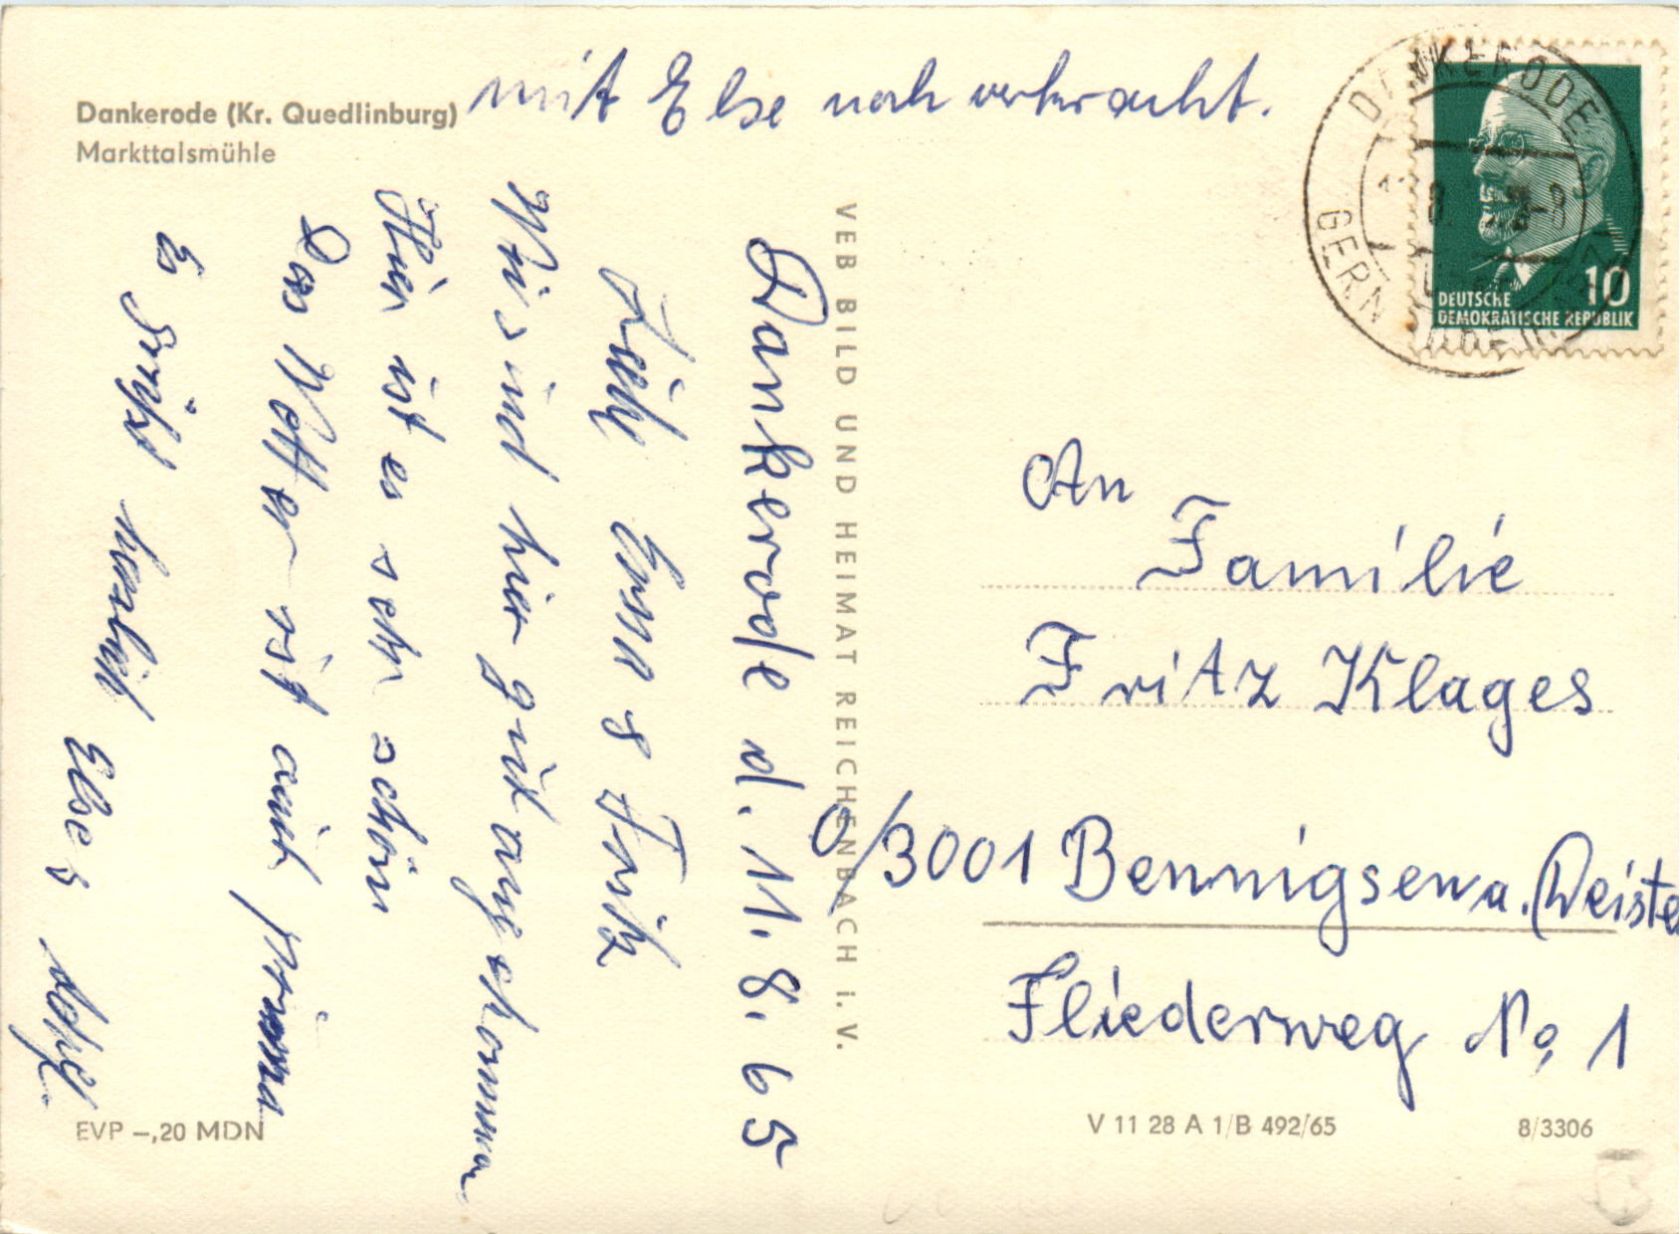 Dankerode (Kr. Quedlinburg)
Markttalsmühle
mit Else noch verkracht.
Dankerode d. 11. 8. 65
Liebe Erna & Fritz
Wir sind hier gut angekommen
Hier ist es sehr schön
Das Wetter ist auch prima
Es grüßt herzlich Else &
VEB BILD UND HEIMAT REICHENBACH I. V.
DANKERODE
DEUTSCHE
DEMOKRATISCHE REPUBLIK
10
An
Familie
Fritz Klages
3001 Bennigsen a. Deiste
Fliederweg No 1
EVP –,20 MDN
V 11 28 A 1/B 492/65
8/3306